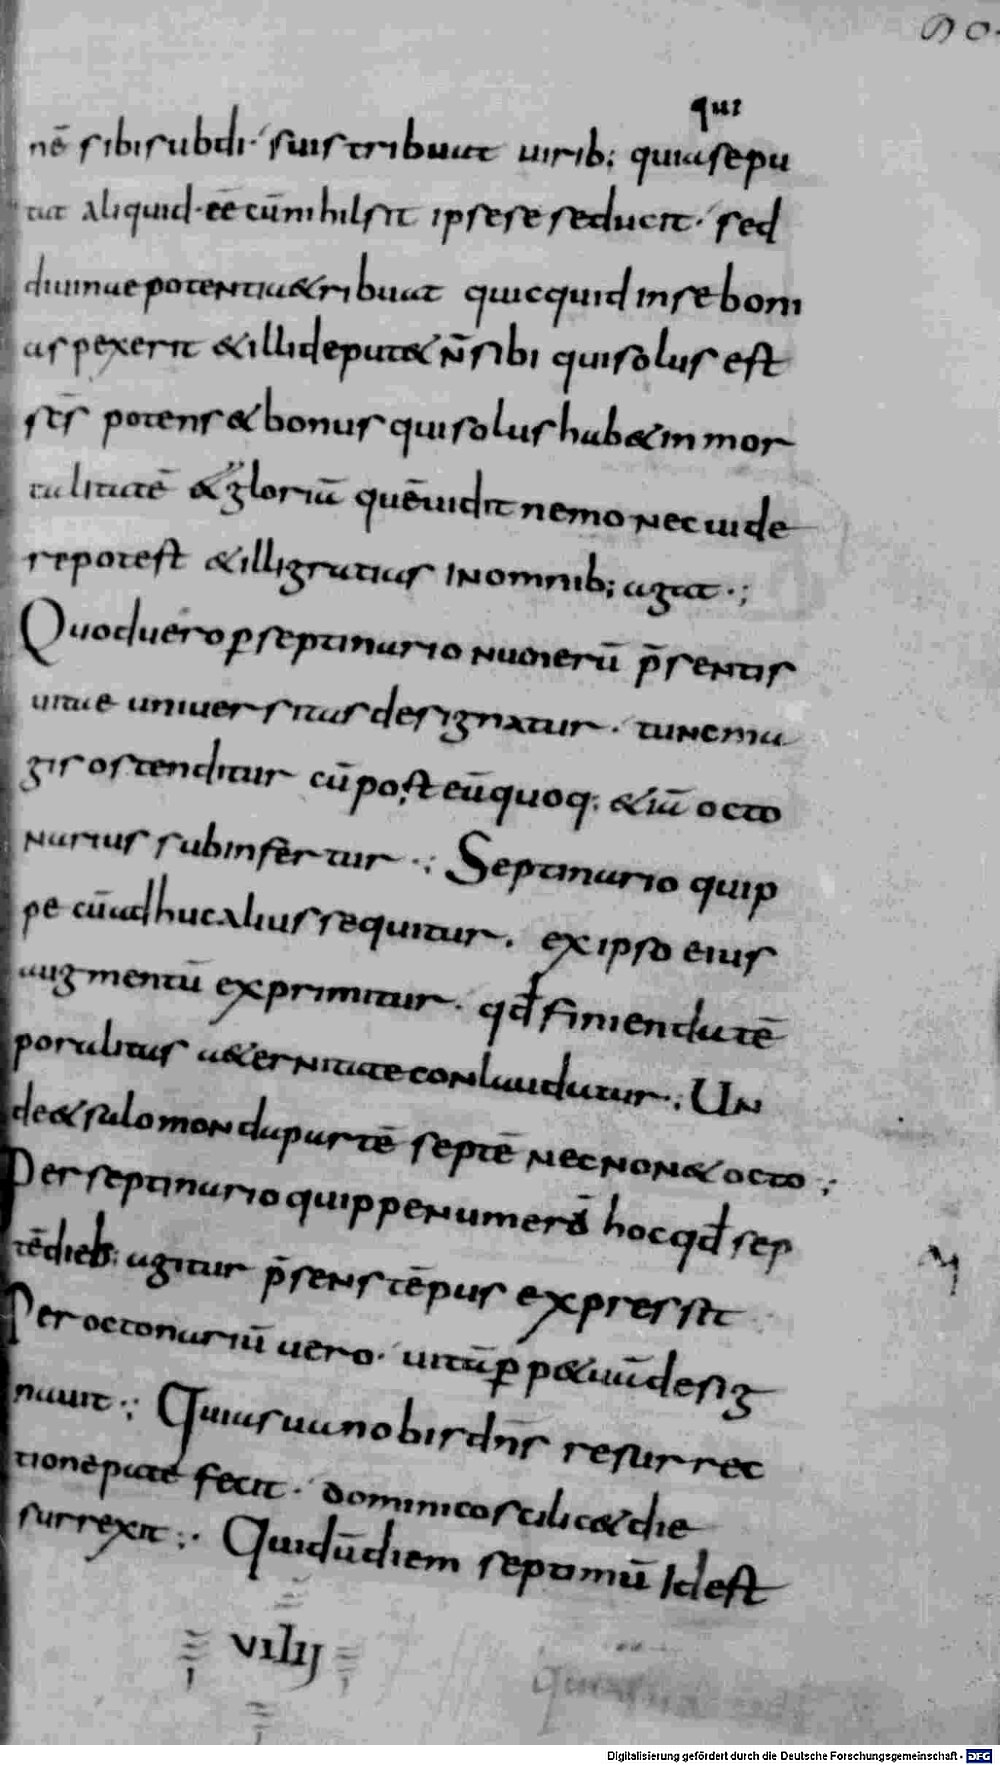 90.
qui
nē sibi subdi· suis tribuat uirib; quia se pu
tat aliquid· eē cū nihil sit ipse se seducit· sed
diuinae potentiae &ribuat quicquid in se boni
aspexerit & illi deput& n̄ sibi qui solus est
scs̄ potens & bonus qui solus hab& inmor
talitatē & gloriā quē uidit nemo nec uide
re potest & illi gratias in omnib; agat·;
Quod uero p septinario numerū p̄sentis
uitae uniuersitas designatur· tunc ma
gis ostenditur cū post eū quoq; &iā octo
narius subinfertur·; Septinario quip
pe cū adhuc alius sequitur· ex ipso eius
augmentū exprimitur· qđ finienda tē
poralitas a&ernitate conlaudatur·; Un
de & salomon da partē septē necnon & octo;
Per septinario quippe numerō hoc qđ sep
tē dieb; agitur p̄sens tēpus expressit
Per octonariū uero· uitā pp&uā desig
nauit·; Quius ua nobis dn̄s resurrec
tione patē fecit· dominico scilic& die
surrexit;· Qui dū diem septimū Id est
VIIIJ
Digitalisierung gefördert durch die Deutsche Forschungsgemeinschaft - DFG